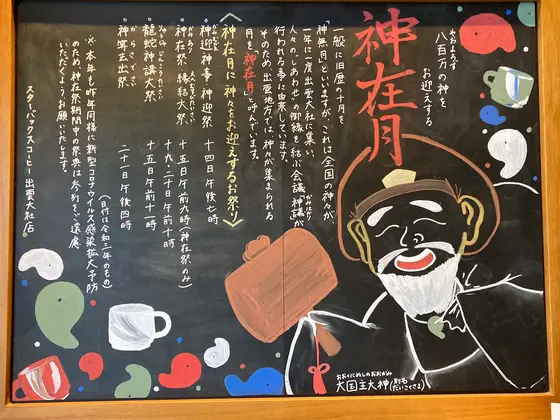 神在月
やおよろず
八百万の神を
お迎えする
一般に旧歴の十月を
「神無月」といいますが、これは全国の神々が、
一年に一度出雲大社に集い、
人々の"しあわせ"の御縁を結ぶ会議「神議」が
かみはかり
行われる事に由来しています。
そのため出雲地方では、神々が集まられる
月を「神在月」と呼んでいます。
《神在月に神々をお迎えするお祭り》
・神迎神事・神迎祭 十四日午後七時
・神在祭 十五日午前九時(神在祭のみ)
・神在祭・縁結大祭 十九、二十日午前十時
・龍蛇神講大祭 十五日午前十一時
・神等去出祭 二十一日午後四時
からさでさい
(日付は令和三年のもの)
※本年も昨年同様に新型コロナウイルス感染拡大予防
のため、神在祭期間中の祭典は参列をご遠慮
いただくようお願いいたします。
スターバックスコーヒー 出雲大社店
おおくにぬしのおおかみ
大国主大神(別名 だいこくさま)